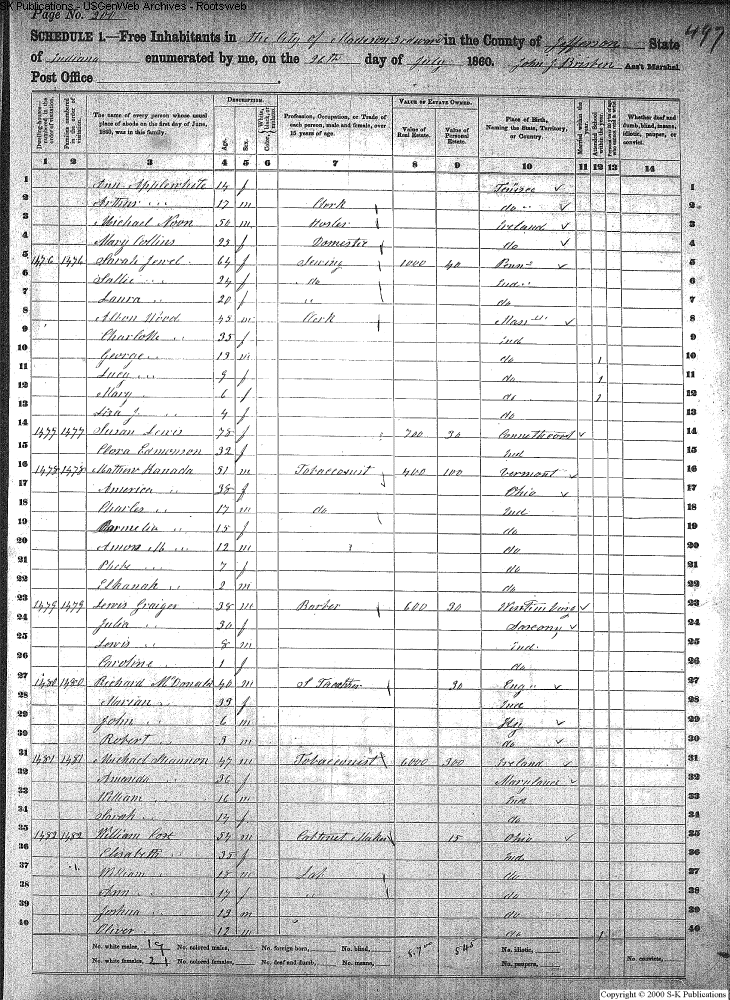 SK Publications - USGenWeb Archives - Rootsweb
Page No. 204
497
SCHEDULE 1.—Free Inhabitants in the City of Madison 3d ward in the County of Jefferson State
of Indiana enumerated by me, on the 26th day of July 1860. John J. Brisben Ass't Marshal.
Post Office
Dwelling-houses— numbered in the order of visitation.
Families numbered in the order of visitation.
The name of every person whose usual place of abode on the first day of June, 1860, was in this family.
DESCRIPTION.
Age.
Sex.
White, Color, black, or mulatto.
Profession, Occupation, or Trade of each person, male and female, over 15 years of age.
VALUE OF ESTATE OWNED.
Value of Real Estate.
Value of Personal Estate.
Place of Birth, Naming the State, Territory, or Country.
Married within the year.
Attended School within the year.
Whether deaf and dumb, blind, insane, idiotic, pauper, or convict.
1 2 3 4 5 6 7 8 9 10 11 12 13 14
1 Ann Applewhite 14 f 1
2 Arthur " 17 m Clerk do 2
3 Michael Noon 50 m Hosler Ireland 3
4 Mary Collins 23 f Domestic do 4
5 1476 1476 Sarah Jewel 64 f Sewing 1000 40 Penn 5
6 Sallie " 24 f do Ind 6
7 Laura " 20 f " do 7
8 Wood 45 m Clerk Mass 8
9 Charlotte " 35 f ind 9
10 George " 13 m do 1 10
11 Lucy " 9 f do 1 11
12 Mary " 6 f do 1 12
13 Liza J " 4 f do 13
14 1477 1477 Susan Lewis 78 f 700 30 14
15 Clora Edmonson 32 f Ind 15
16 1478 1478 Mathew Hanada 51 m Tobacconist 400 100 Vermont 16
17 America " 38 f Ohio 17
18 Charles " 17 m do Ind 18
19 Parmelia " 15 f do 19
20 Amon M " 12 m do 20
21 Phebe " 7 f do 21
22 Elkanah " 2 m do 22
23 1479 1479 Lewis Graiger 38 m Barber 600 30 23
24 Julia " 30 f Saxony 24
25 Lewis " 8 m ind 25
26 Caroline " 1 f do 26
27 1480 1480 Richard McDonald 40 m 30 Eng 27
28 Marian " 33 f Ind 28
29 John " 6 m Ky 29
30 Robert " 3 m do 30
31 1481 1481 Michael Shannon 47 m Tobacconist 6000 300 Ireland 31
32 Amanda " 36 f Maryland 32
33 William " 16 m Ind 33
34 Sarah " 14 f do 34
35 1482 1482 William Cox 54 m Cabinet Maker 15 Ohio 35
36 Elizabeth " 35 f Ind 36
37 William " 18 m Lab do 37
38 Ann " 17 f " do 38
39 Joshua " 13 m do 39
40 Oliver " 12 m do 1 40
No. white males, 19 No. colored males, No. foreign born, No. blind, No. idiotic,
No. white females, 21 No. colored females, No. deaf and dumb, No. insane, 545 No. paupers, No. convicts,
Copyright © 2000 S-K Publications